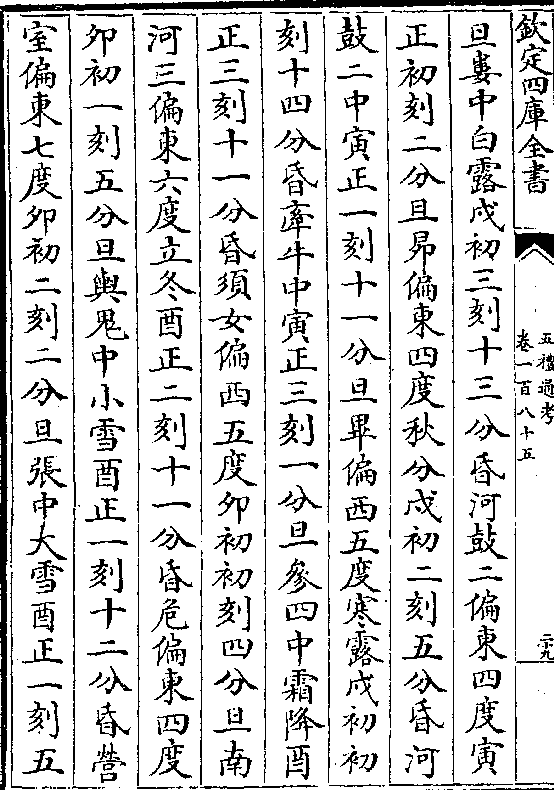 欽定四庫全書
五禮通考
卷一百八十五
二十九
旦婁中白露戌初三刻十三分昏河鼓二偏東四度寅
正初刻二分旦昴偏東四度秋分戌初二刻五分昏河
鼓二中寅正一刻十一分旦畢偏西五度寒露戌初初
刻十四分昏牽牛中寅正三刻一分旦參四中霜降酉
正三刻十一分昏須女偏西五度卯初初刻四分旦南
河三偏東六度立冬酉正二刻十一分昏危偏東四度
卯初一刻五分旦輿鬼中小雪酉正一刻十二分昏營
室偏東七度卯初二刻二分旦張中大雪酉正一刻五